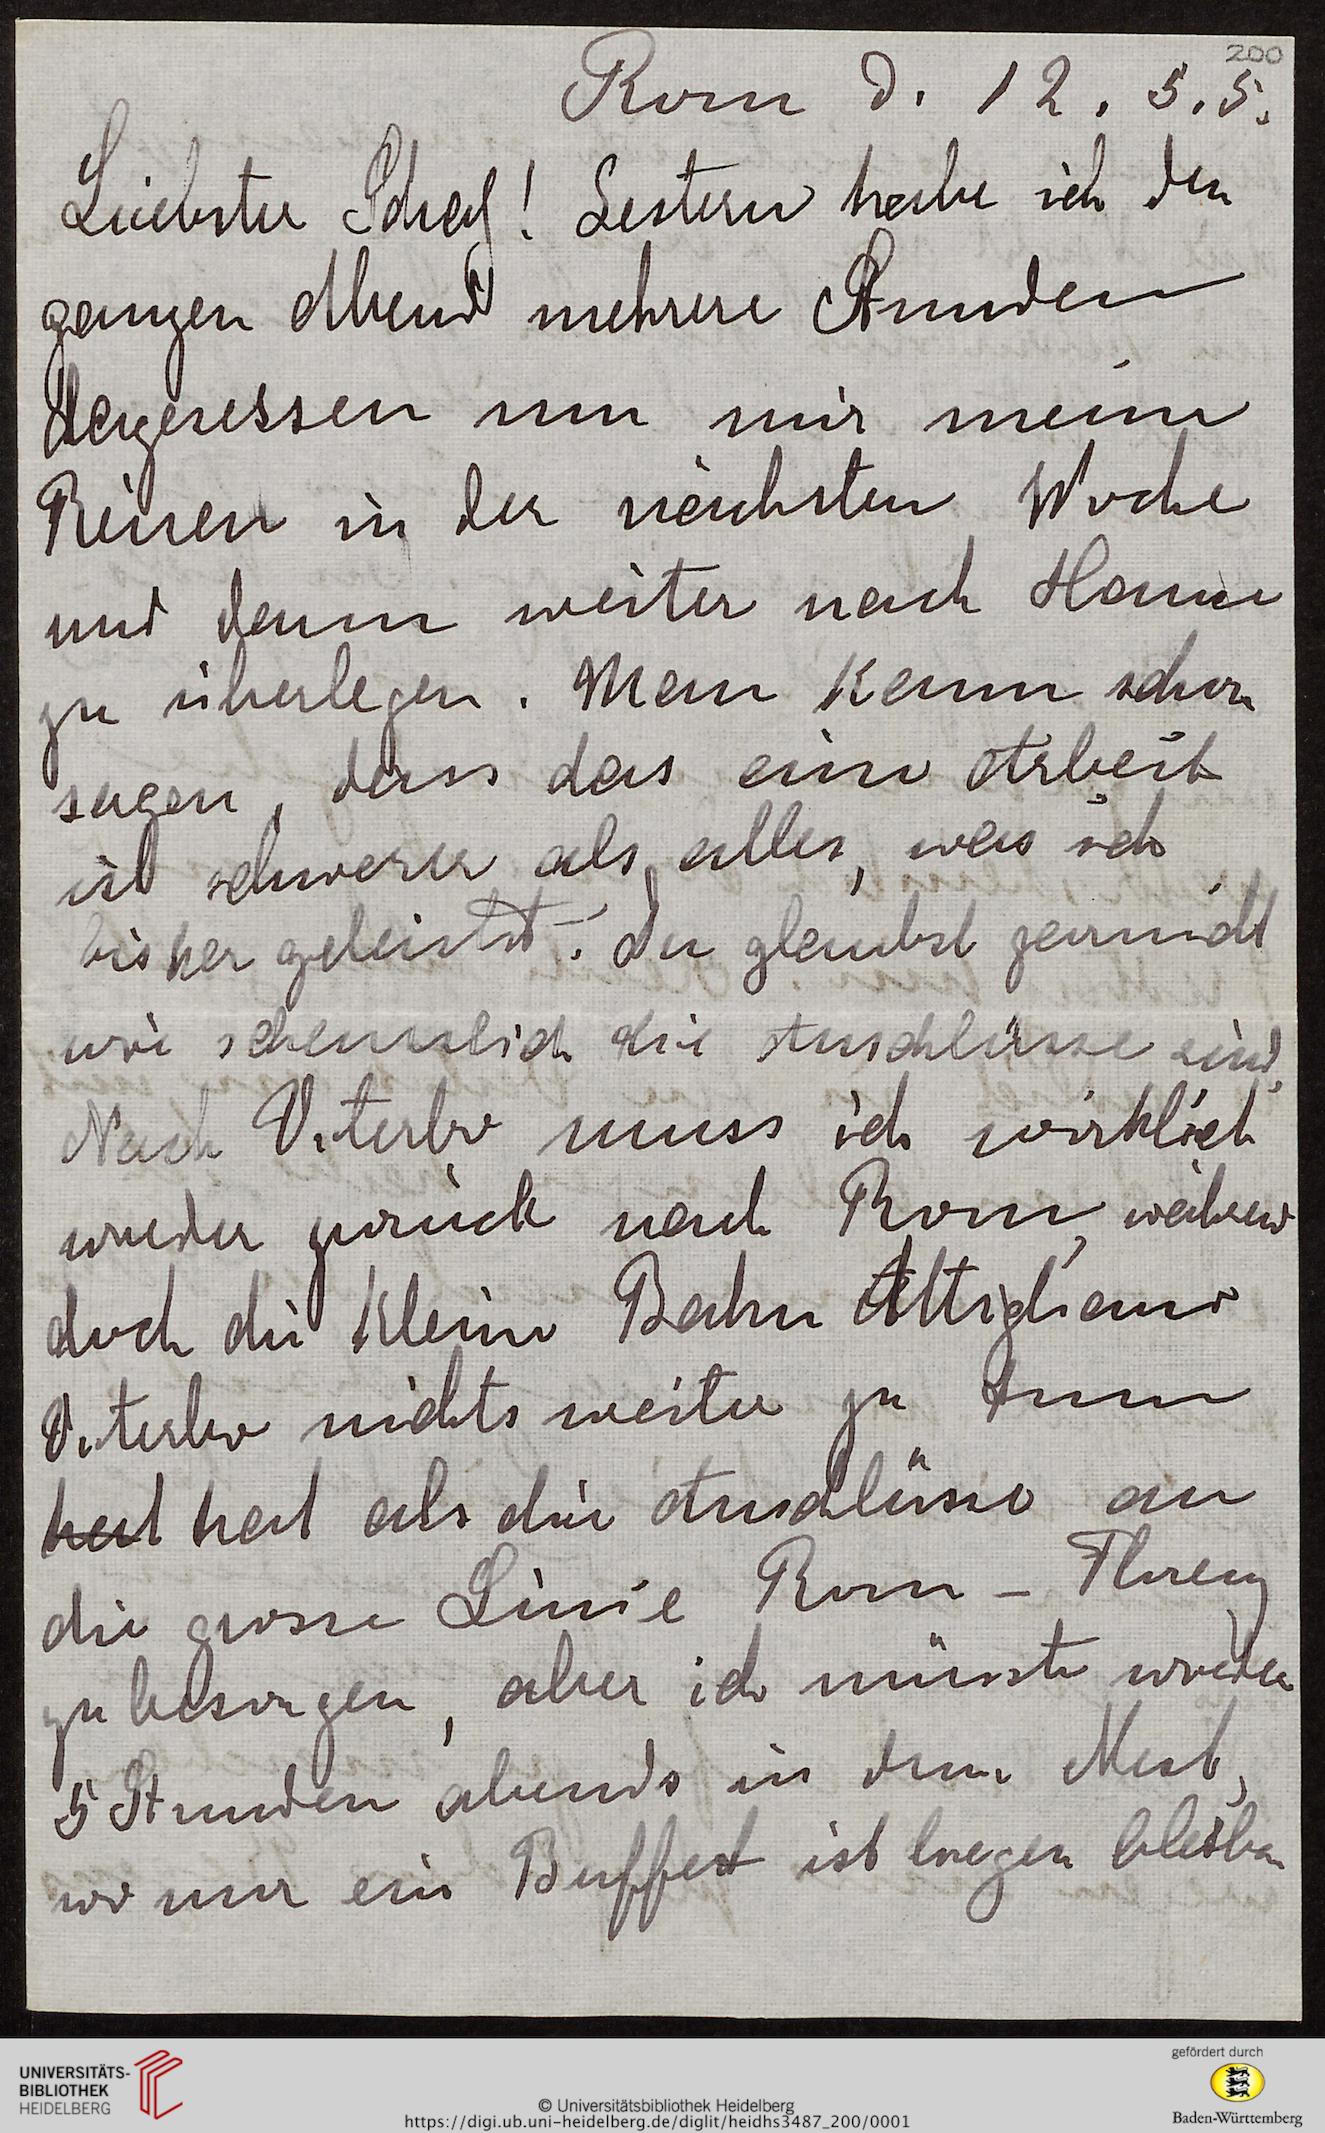 200
Rom d. 12. 5. 5.
Liebster Schatz! Gestern habe ich den
ganzen Abend mehrere Stunden
dagesessen um mir meine
Reisen in der nächsten Woche
und dann weiter nach Hause
zu überlegen. Man kann schon
sagen, dass das eine Arbeit
ist schwerer als alles, was ich
bisher geleistet. Du glaubst gar nicht
wie scheusslich die Anschlüsse sind.
Nach Viterbo muss ich wirklich
wieder zurück nach Rom, während
doch die kleine Bahn Attigliano
Viterbo nichts weiter zu tun
hat hat als die Anschlüsse an
die grosse Linie Rom – Florenz
zu besorgen, aber ich müsste wieder
5 Stunden abends in dem Nest,
wo nur ein Buffet ist liegen bleiben
UNIVERSITÄTS-
BIBLIOTHEK
HEIDELBERG
© Universitätsbibliothek Heidelberg
https://digi.ub.uni-heidelberg.de/diglit/heidhs3487_200/0001
gefördert durch
Baden-Württemberg